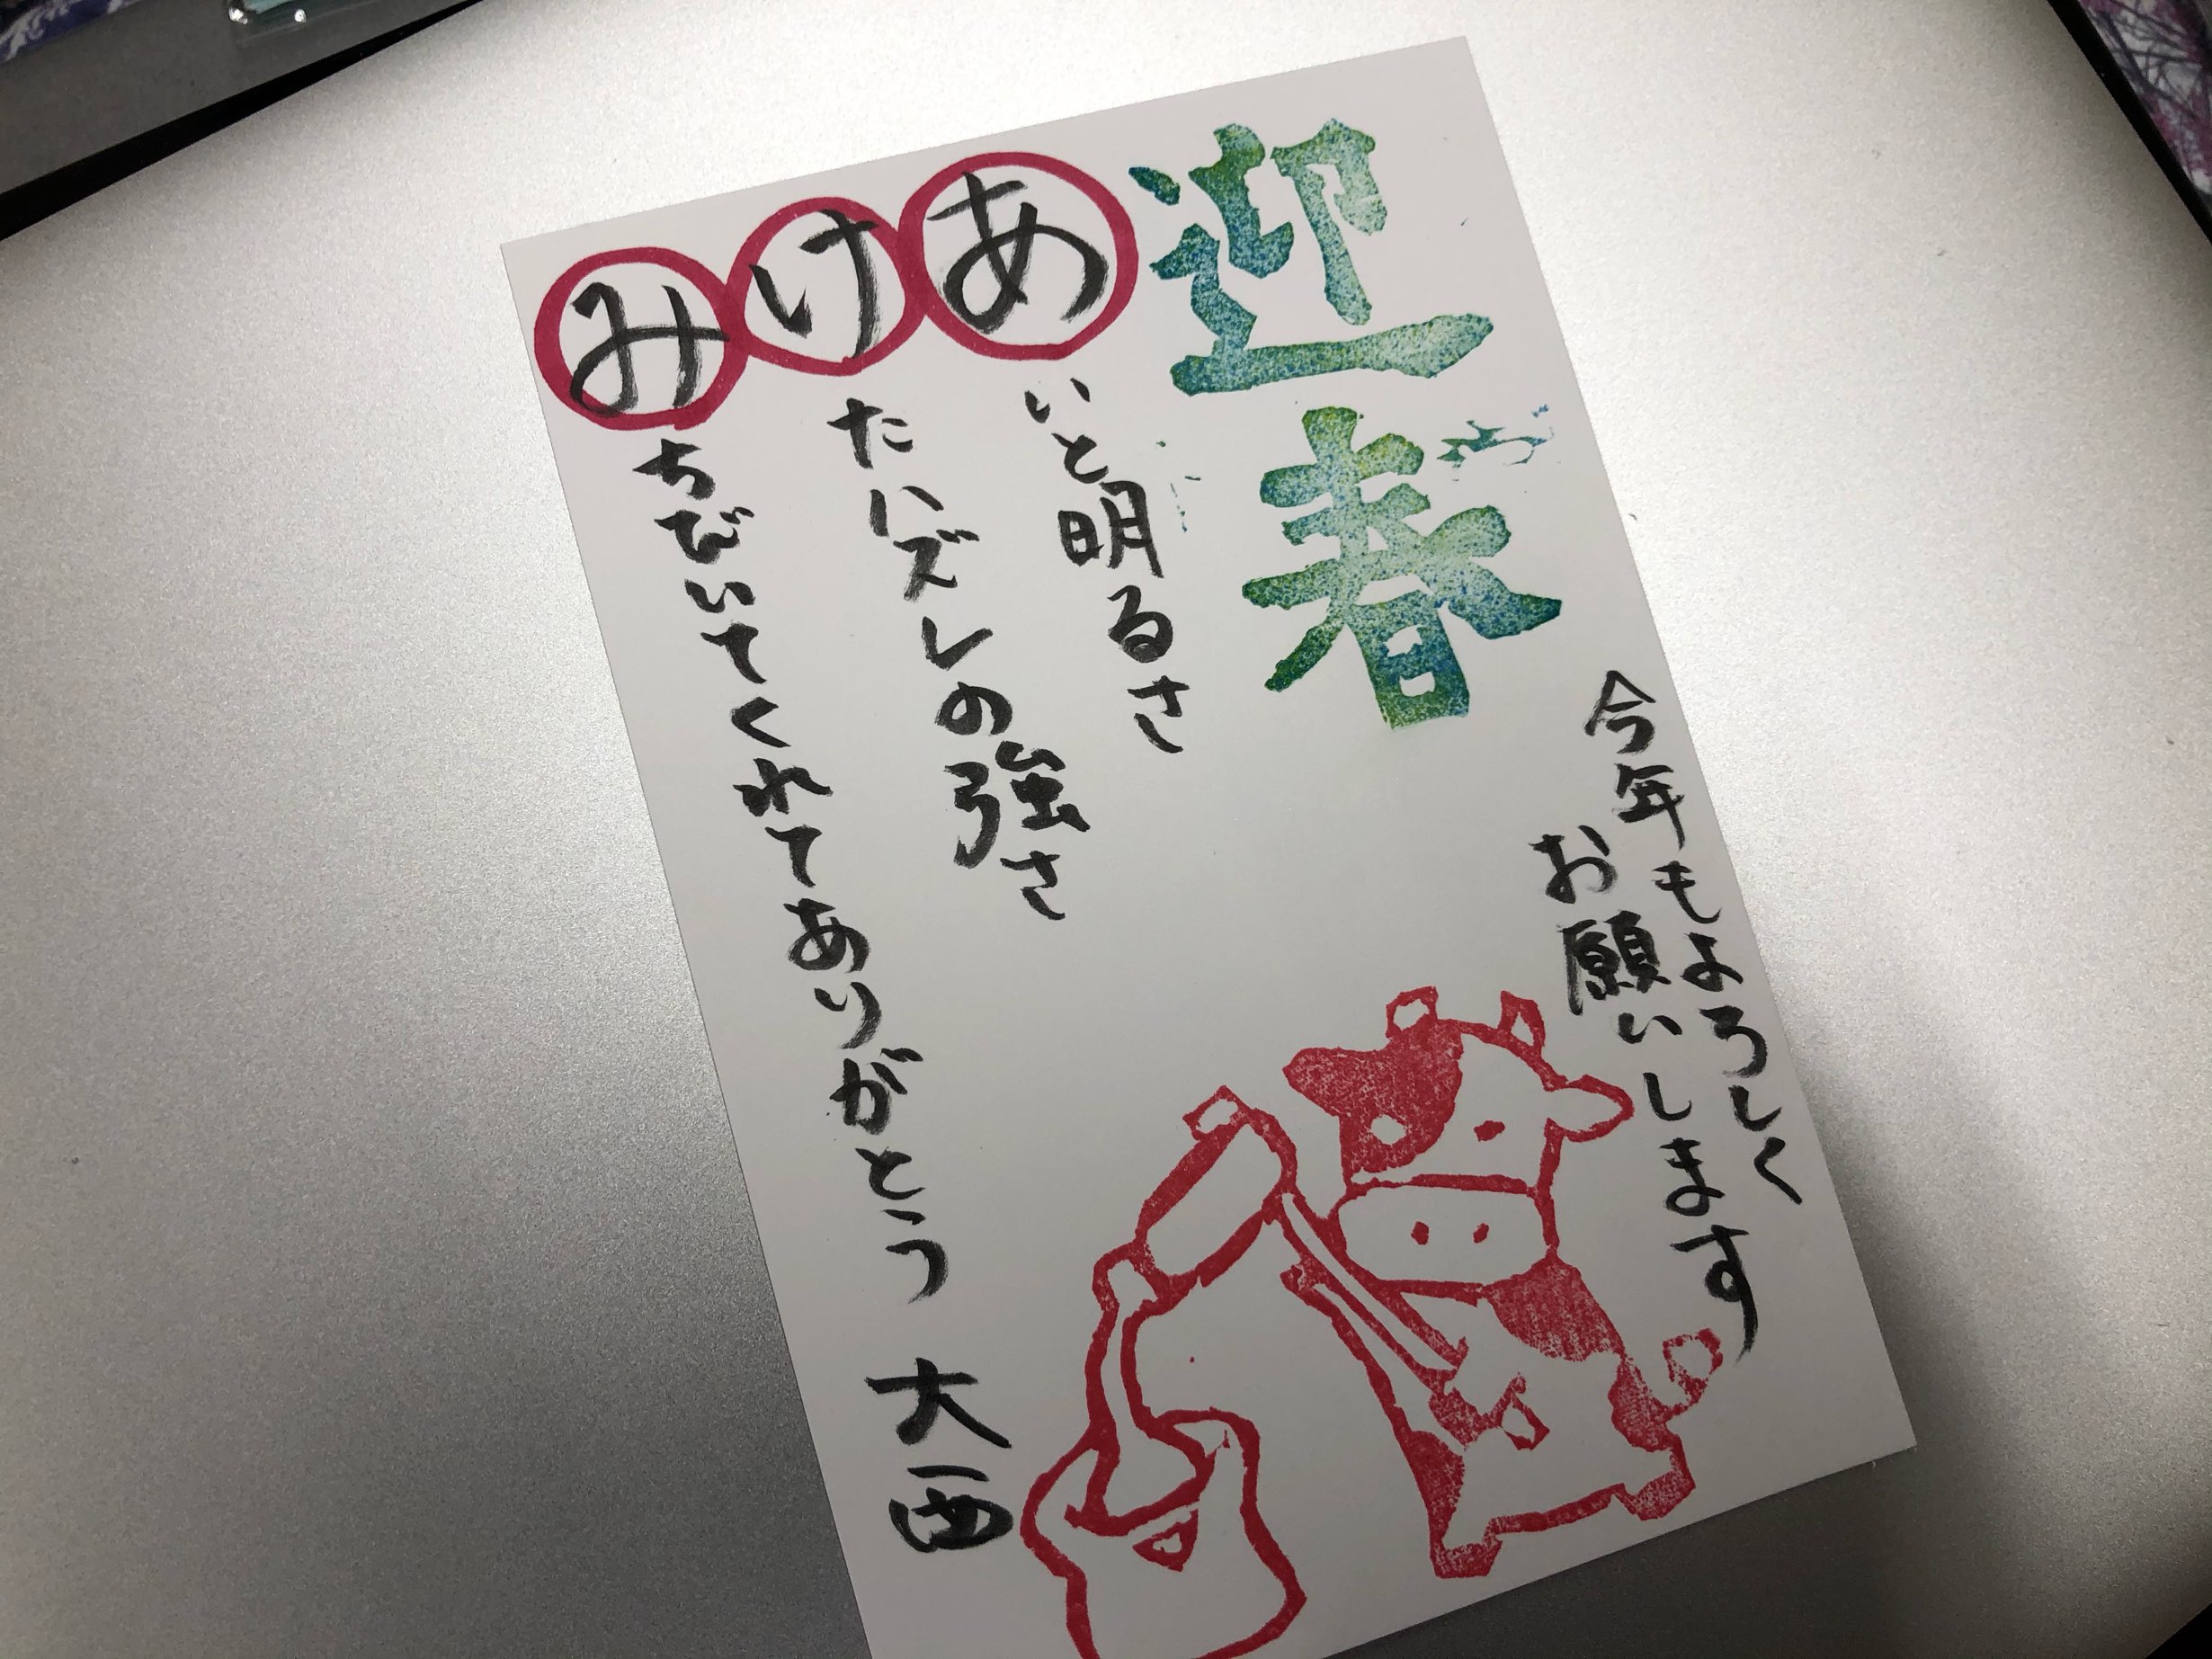 迎春
今年もよろしく
お願いします
あいと明るさ
けたハズレの強さ
みちびいてくれてありがとう 大西